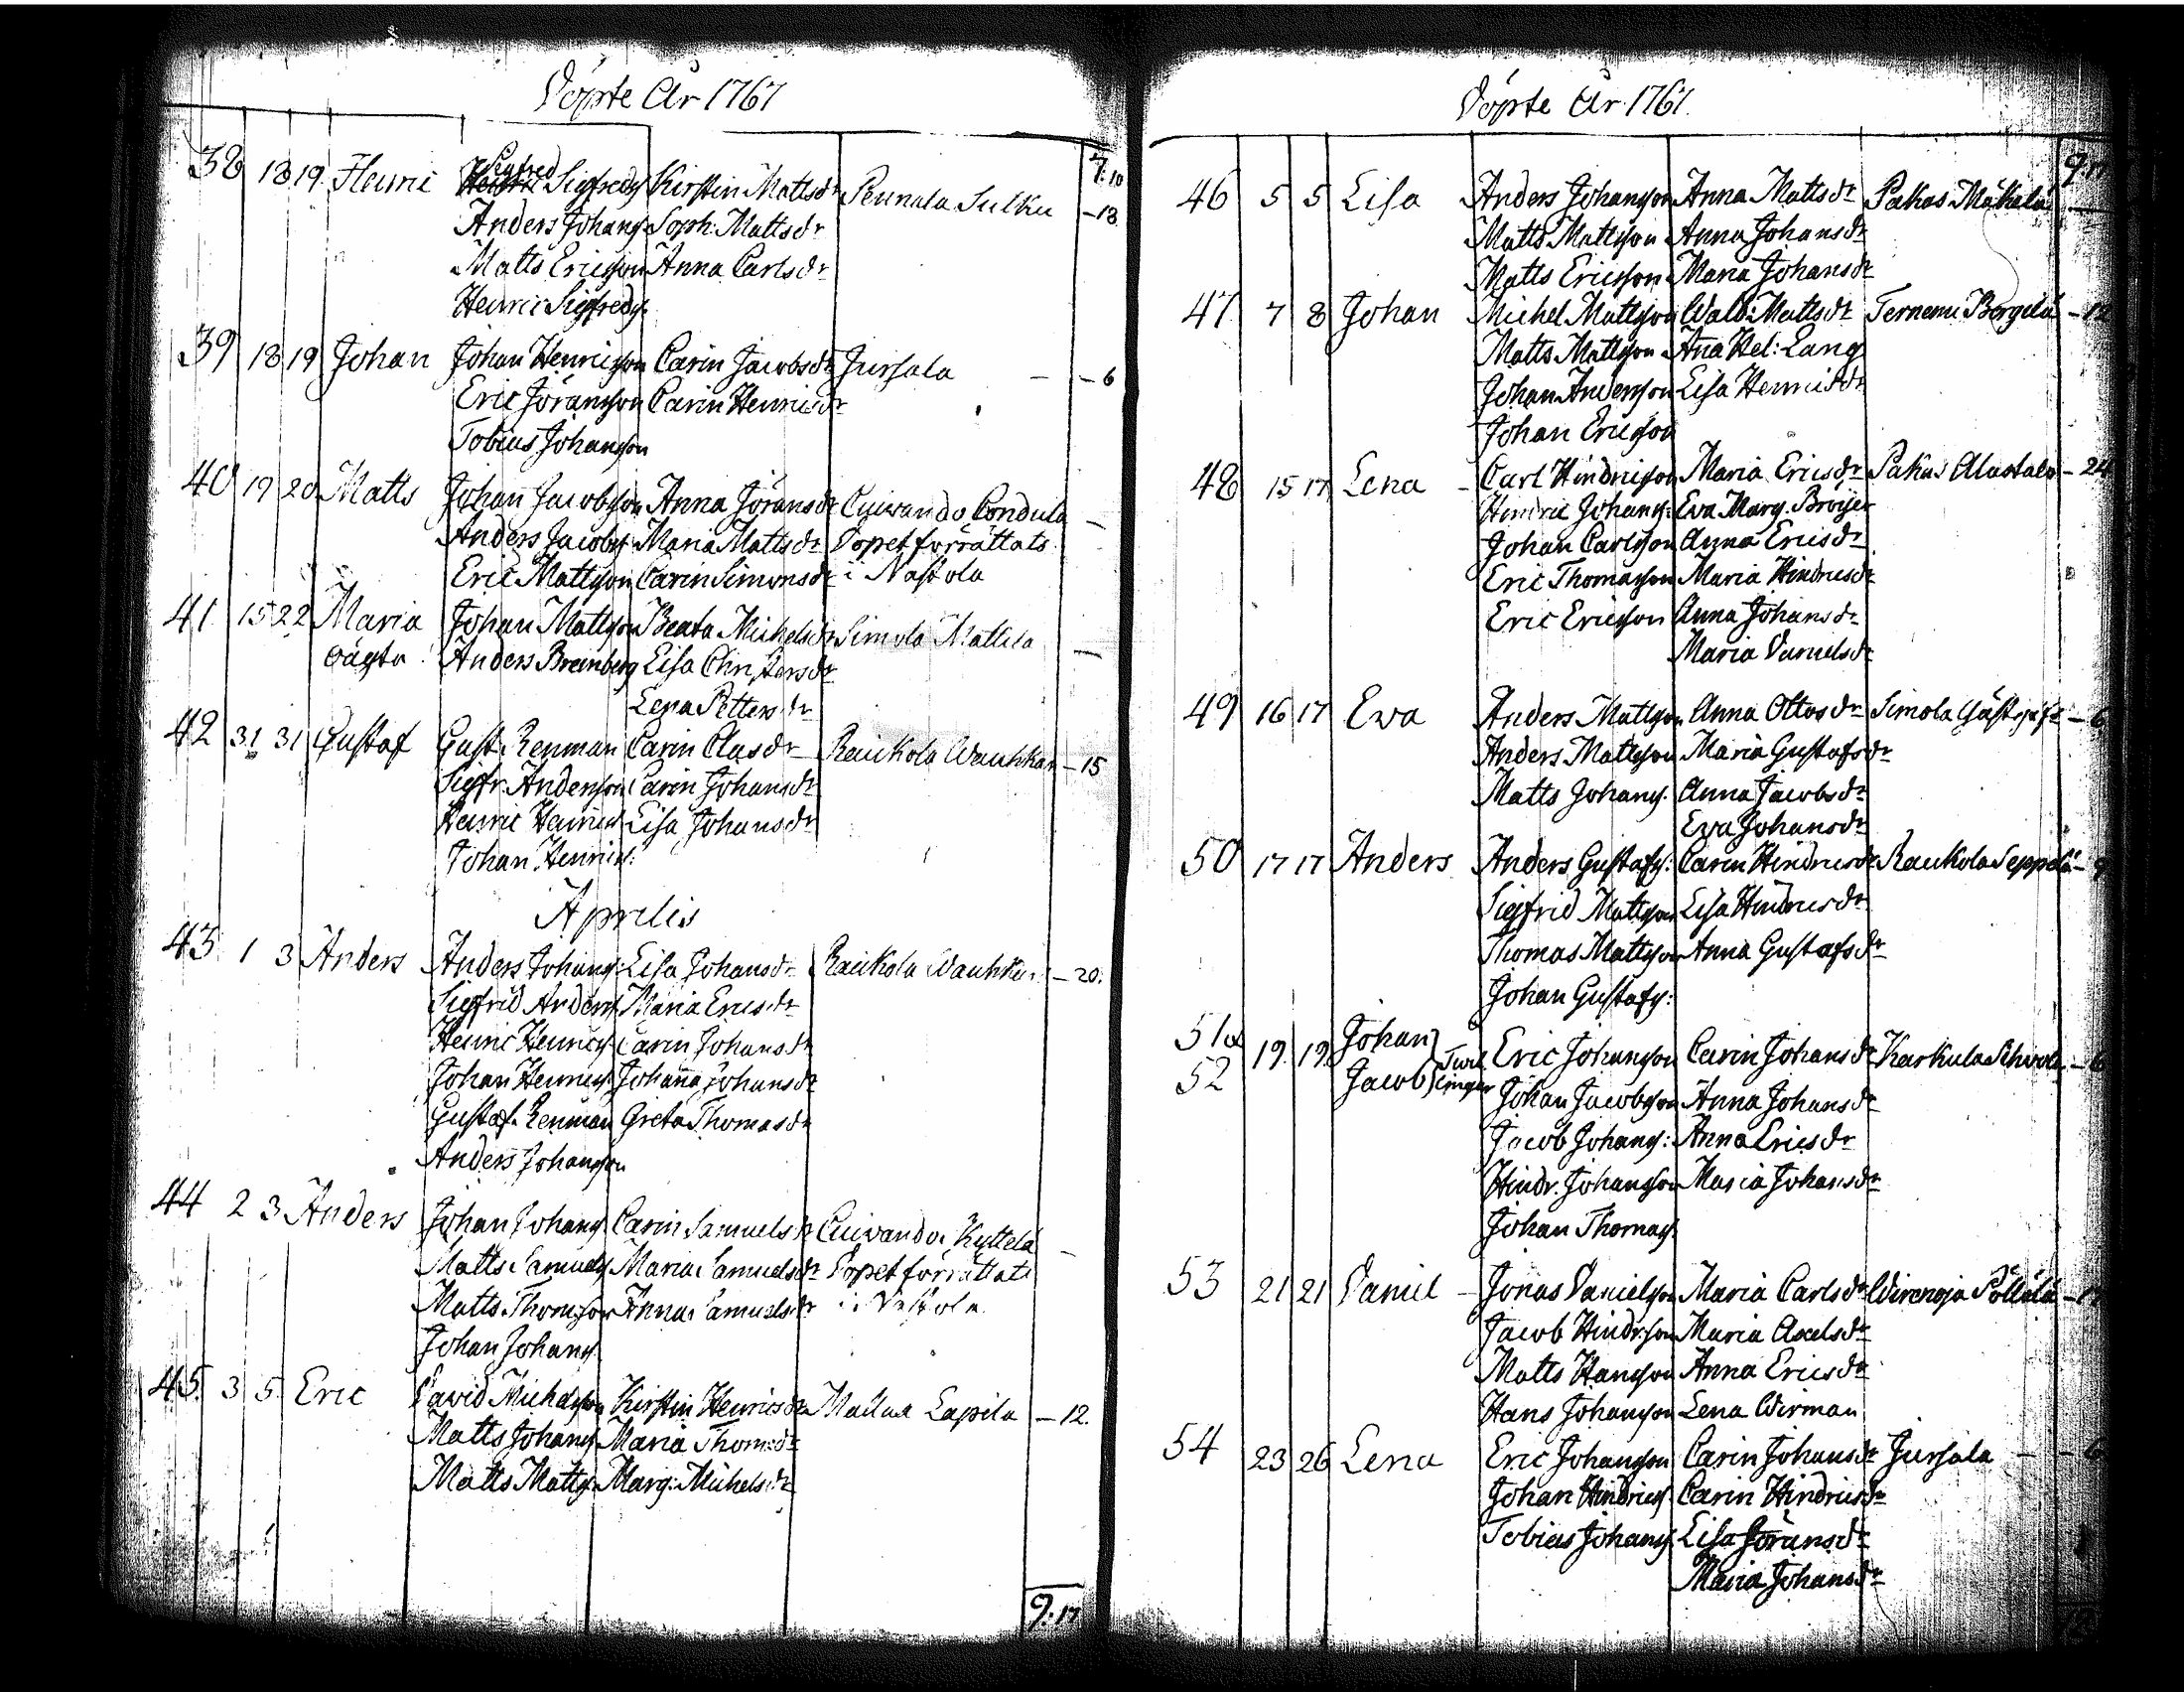 Döpte År 1767
7:10
38 18 19 Henric Sigfred Sigfredss Kirstin Mattsdr Pennala Sulku -18
Anders Johanss Soph: Mattsdr
Matts Ericsson Anna Carlsdr
Henric Sigfredss
39 18 19 Johan Johan Henricsson Carin Jacobsdr Jursala - -6
Eric Jöransson Carin Henricsdr
Tobias Johansson
40 19 20 Matts Johan Jacobsson Anna Jöransdr Cuivando Condula -
Anders Jacobss Maria Mattsdr Döpet förrättats
Eric Mattsson Carin Simonsdr i Nastola
41 15 22 Maria Johan Mattsson Beata Michelsdr Simola Mattila -
oägta Anders Breinberg Lisa Christersdr
Lena Pettersdr
42 31 31 Gustaf Gust. Renman Carin Clasdr Raukola Wauhkon -15
Sigfr. Andersson Carin Johansdr
Henric Henricss Lisa Johansdr
Johan Henrics:
Aprilis
43 1 3 Anders Anders Johanss Lisa Johansdr Raukola Wauhkon -20.
Sigfrid Anderss Maria Ericsdr
Henric Henricss Carin Johansdr
Johan Henricss Johanna Johansdr
Gustaf Renman Greta Thomasdr
Anders Johansson
44 2 3 Anders Johan Johanss Carin Samuelsdr Cuivando Kyttelä -
Matts Samuelss Maria Samuelsdr Döpet förrättats
Matts Thomsson Anna Samuelsdr i Nastola
Johan Johanss
45. 3 5. Eric David Michelsson Kirstin Henricsdr Mallad Lapila -12.
Matts Johanss Maria Thomsdr
Matts Mattss Marg: Michelsdr
9:17
Döpte År 1767.
9:17
46 5 5 Lisa Anders Johansson Anna Mattsdr Pakas Mäkelä -
Matts Mattsson Anna Johansdr
Matts Ericsson Maria Johansdr
47 7 8 Johan Michel Mattsson Walb: Mattsdr Ternemi Borgelä -12
Matts Mattsson Ana Hel: Lang
Johan Andersson Lisa Henricsdr
Johan Ericsson
48 15 17 Lena - Carl Hindricsson Maria Ericsdr Pakas Alastalo -24
Hindric Johanss: Eva Marg. Bröijer
Johan Carlsson Anna Ericsdr
Eric Thomasson Maria Hindricsdr
Eric Ericsson Anna Johansdr
Maria Danielsdr
49 16 17 Ewa Anders Mattsson Anna Ottosdr Simola Gästgifv -6
Anders Mattsson Maria Gustafsdr
Matts Johanss. Anna Jacobsdr
Ewa Johansdr
50 17 17 Anders Anders Gustafss: Carin Hindricsdr Raukola Seppälä -9
Sigfrid Mattsson Lisa Hindricsdr
Thomas Mattsson Anna Gustafsdr
Johan Gustafss:
51 a 19. 19. Johan Eric Johansson Carin Johansdr Karkula -6
52 Jacob Twillingar Johan Jacobsson Anna Johansdr
Jacob Johanss: Anna Ericsdr
Hindr. Johansson Maria Johansdr
Johan Thomass.
53 21 21 Daniel - Jonas Danielsson Maria Carlsdr Wirenoja Pöllälä -17
Jacob Hindrsson Maria Axelsdr
Matts Hansson Anna Ericsdr
Hans Johansson Lena Wirman
54 23 26 Lena Eric Johansson Carin Johansdr Jursala - -6
Johan Hindricss. Carin Hindricsdr
Tobias Johanss. Lisa Jöransdr
Maria Johansdr